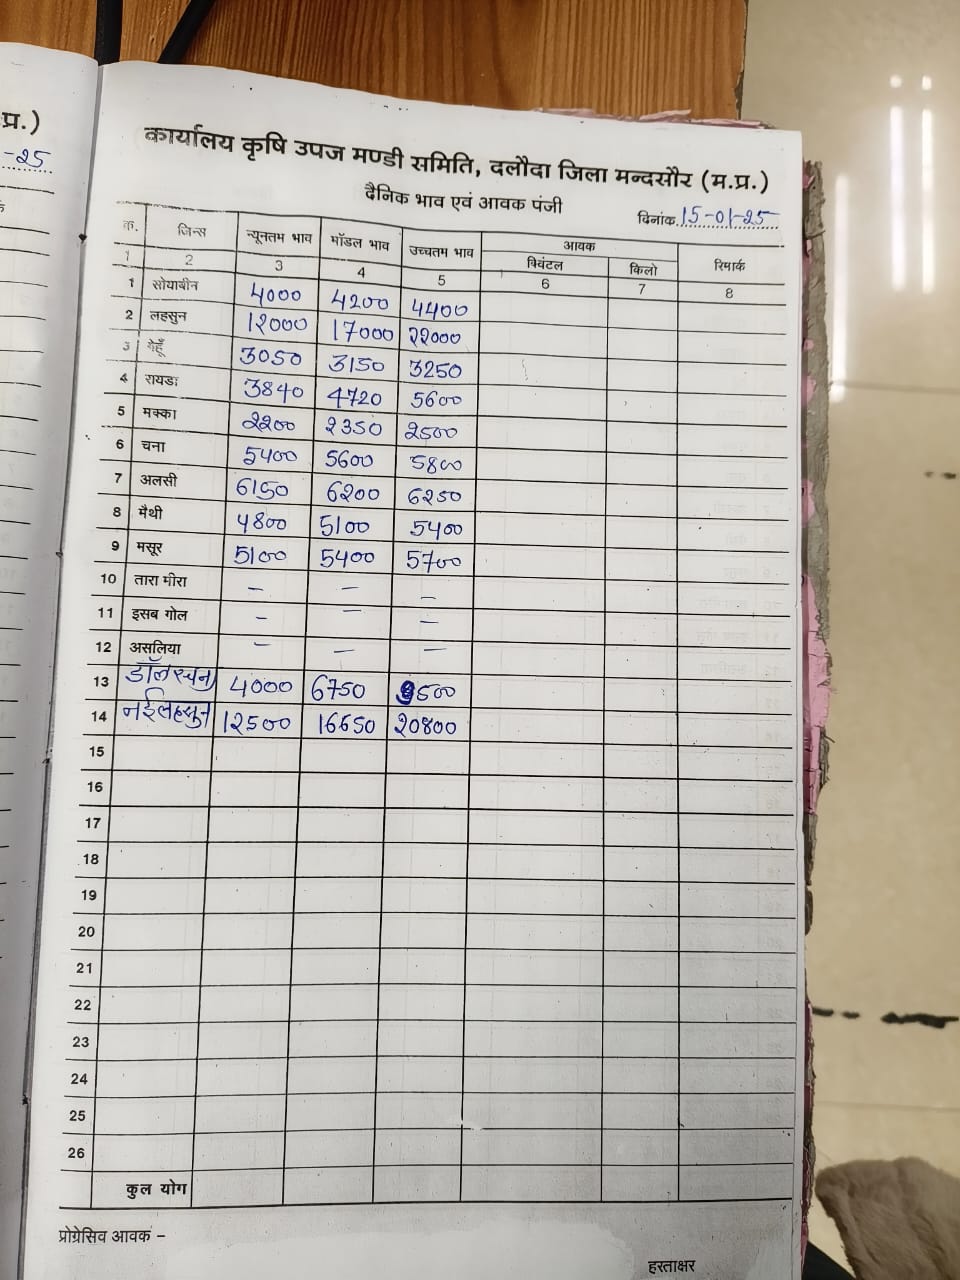 प्र.)
-25
कार्यालय कृषि उपज मण्डी समिति, दलौदा जिला मन्दसौर (म.प्र.)
दैनिक भाव एवं आवक पंजी
दिनांक 15-01-25
क्र. जिन्स न्यूनतम भाव मॉडल भाव उच्चतम भाव आवक रिमार्क
क्विंटल किलो
1 2 3 4 5 6 7 8
1 सोयाबीन 4000 4200 4400
2 लहसुन 12000 17000 22000
3 गेहूँ 3050 3150 3250
4 रायडा 3840 4720 5600
5 मक्का 2200 2350 2500
6 चना 5400 5600 5800
7 अलसी 6150 6200 6250
8 मैथी 4800 5100 5400
9 मसूर 5100 5400 5700
10 तारा मीरा – – –
11 इसब गोल – – –
12 असलिया – – –
13 डॉलरचना 4000 6750 9500
14 नईलहसुन 12500 16650 20800
15
16
17
18
19
20
21
22
23
24
25
26
कुल योग
प्रोग्रेसिव आवक –
हस्ताक्षर